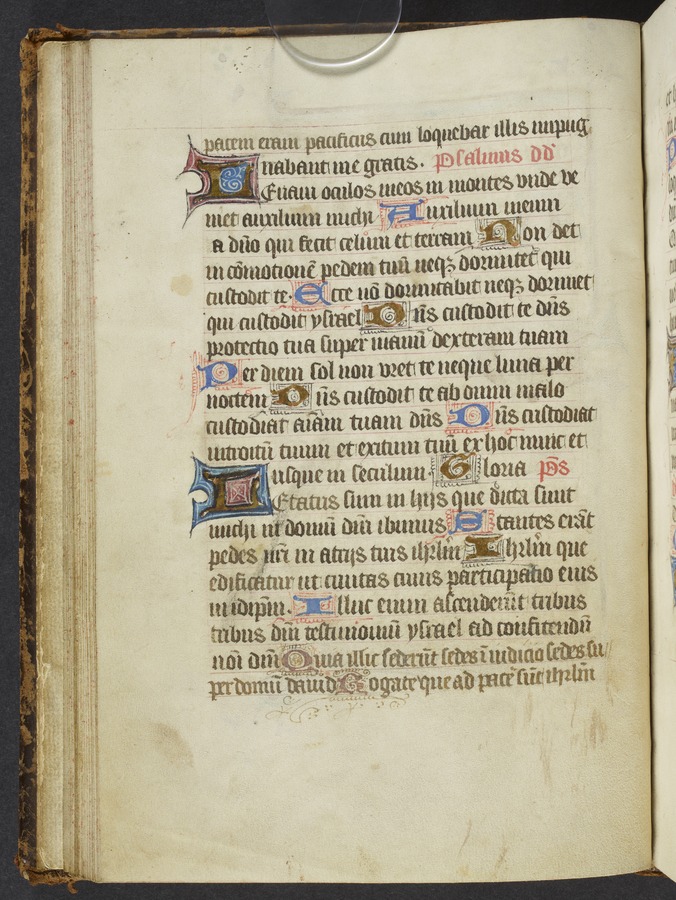 pacem eram pacificus cum loquebar illis inpug
nabant me gratis. Psalmus dd
Leuaui oculos meos in montes vnde ve
niet auxilium michi Auxilium meum
a dño qui fecit celum et terram Non det
in cōmotionē pedem tuū neqꝫ dormitet qui
custodit te. Ecce nō dormitabit neqꝫ dormiet
qui custodit ysrael Dñs custodit te dñs
protectio tua super manū dexteram tuam
Per diem sol non vret te neque luna per
noctem Dñs custodit te ab omni malo
custodiat aīam tuam dñs Dñs custodiat
introitū tuum et exitum tuū ex hoc nunc et
usque in seculum. Gloria p̄s
Letatus sum in hijs que dicta sunt
michi in domū dīn ibimus Stantes erāt
pedes nr̄i in atrijs tuis ihrlm̄ Ihrlm̄ que
edificatur ut ciuitas cuius participatio eius
in idip̄m. Illuc enim ascenderūt tribus
tribus dīn testimoniū ysrael ad confitendū
noī dīn Quia illic sederūt sedes ī iudicio sedes su
per domū dauid Rogate que ad pacē sūt ihrlm̄